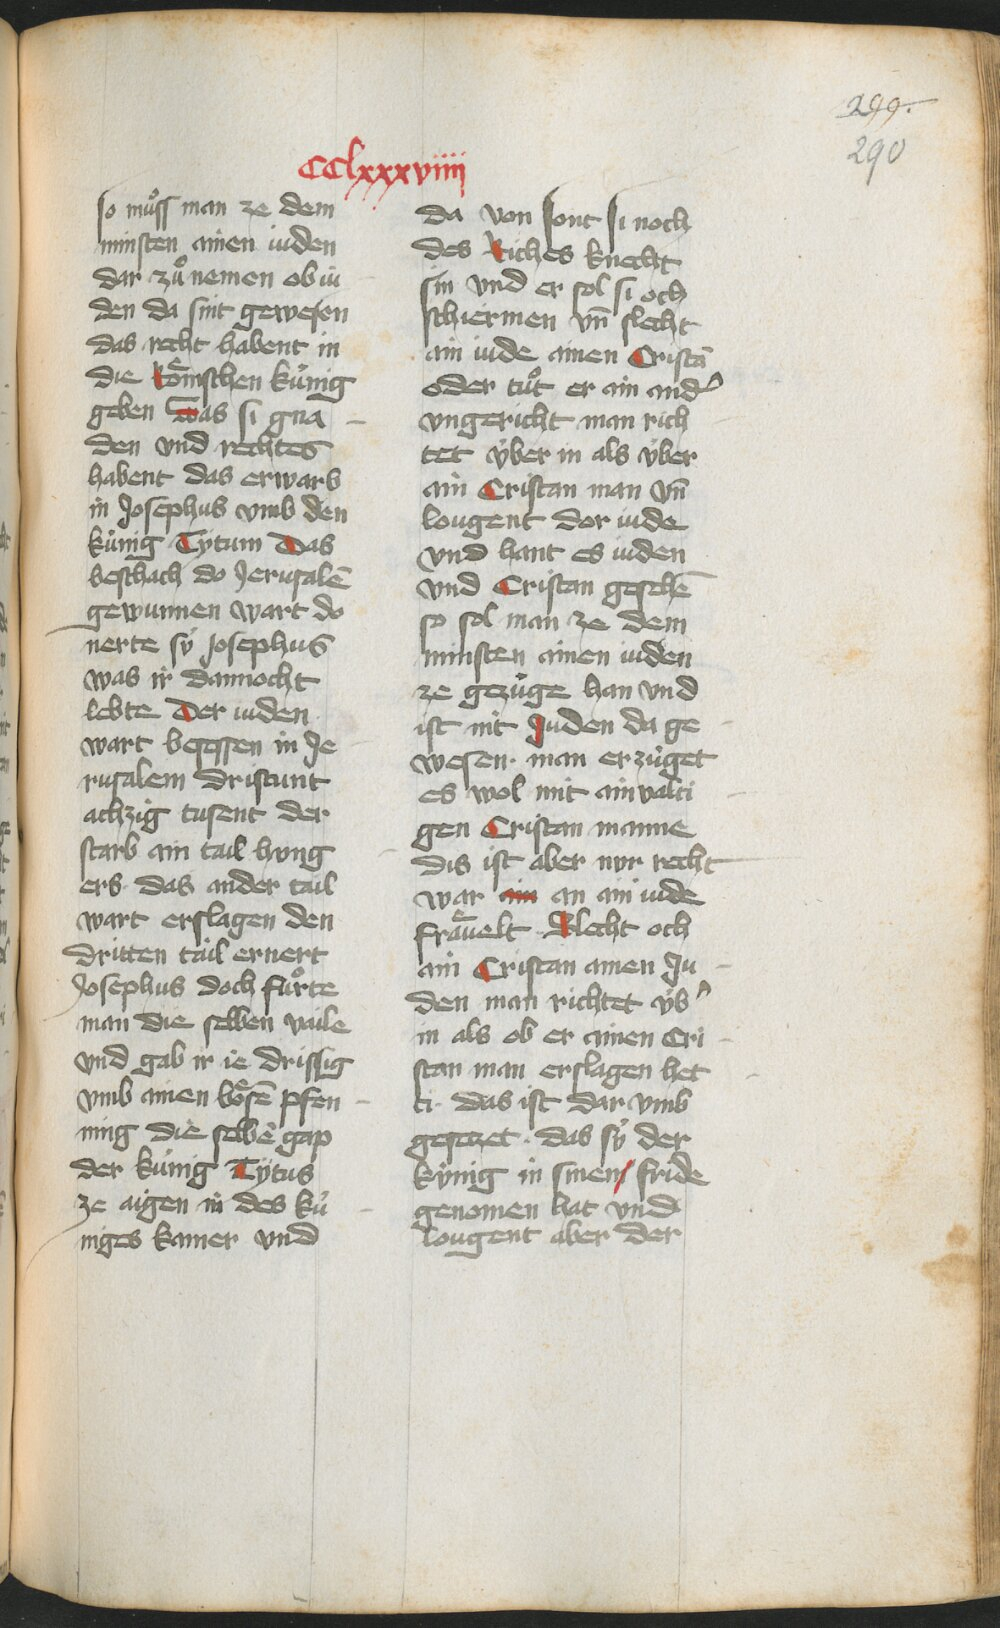 299.
290
CClxxxviiij
so muͦss man ze dem
minsten ainen iuden
dar zuͦ nemen ob iu
den da sint gewesen
das recht habent in
die Roͤmschen kuͤnig
geben Das si gna
den vnd rechtes
habent das erwarb
in Josephus vmb den
kuͤnig Tytum Das
beschach do Jerusalē
gewunnen wart do
nerte sÿ Josephus
was ir dannocht
lebte Der iuden
wart besessen in Je
rusalem dristunt
achzig tusent der
starb ain tail hung
ers das ander tail
wart erslagen den
dritten tail ernert
Josephus doch fuͦrte
man die selben vaile
vnd gab ir ie drissig
vmb ainen boͤsē pfen
ning die selbē gap
der kuͤnig Tÿtus
ze aigen in des kuͤ
niges kamer vnd
da von sont si noch
des Riches knecht
sin vnd er sol si och
schiermen vn̄ slecht
ain iude ainen Cristā
oder tuͦt er ain and̾
vngericht man rich
tet ÿber in als ÿber
ain Cristan man vn̄
lougent dor iude
vnd hant es iuden
vnd Cristan gesehē
so sol man ze dem
minsten ainen iuden
ze gezuͤge han vnd
ist nit Juden da ge
wesen. man erzuͤget
es wol mit ainvalti
gen Cristan manne
dis ist aber nvr recht
war ain an ain iude
fraͤuelt. Slecht och
ain Cristan ainen Ju
den man richtet ÿb̾
in als ob er ainen Cri
stan man erslagen het
ti. das ist dar vmb
gesetzet. das sÿ der
kÿnig in sinen/ fride
genomen hat vnd
lougent aber der